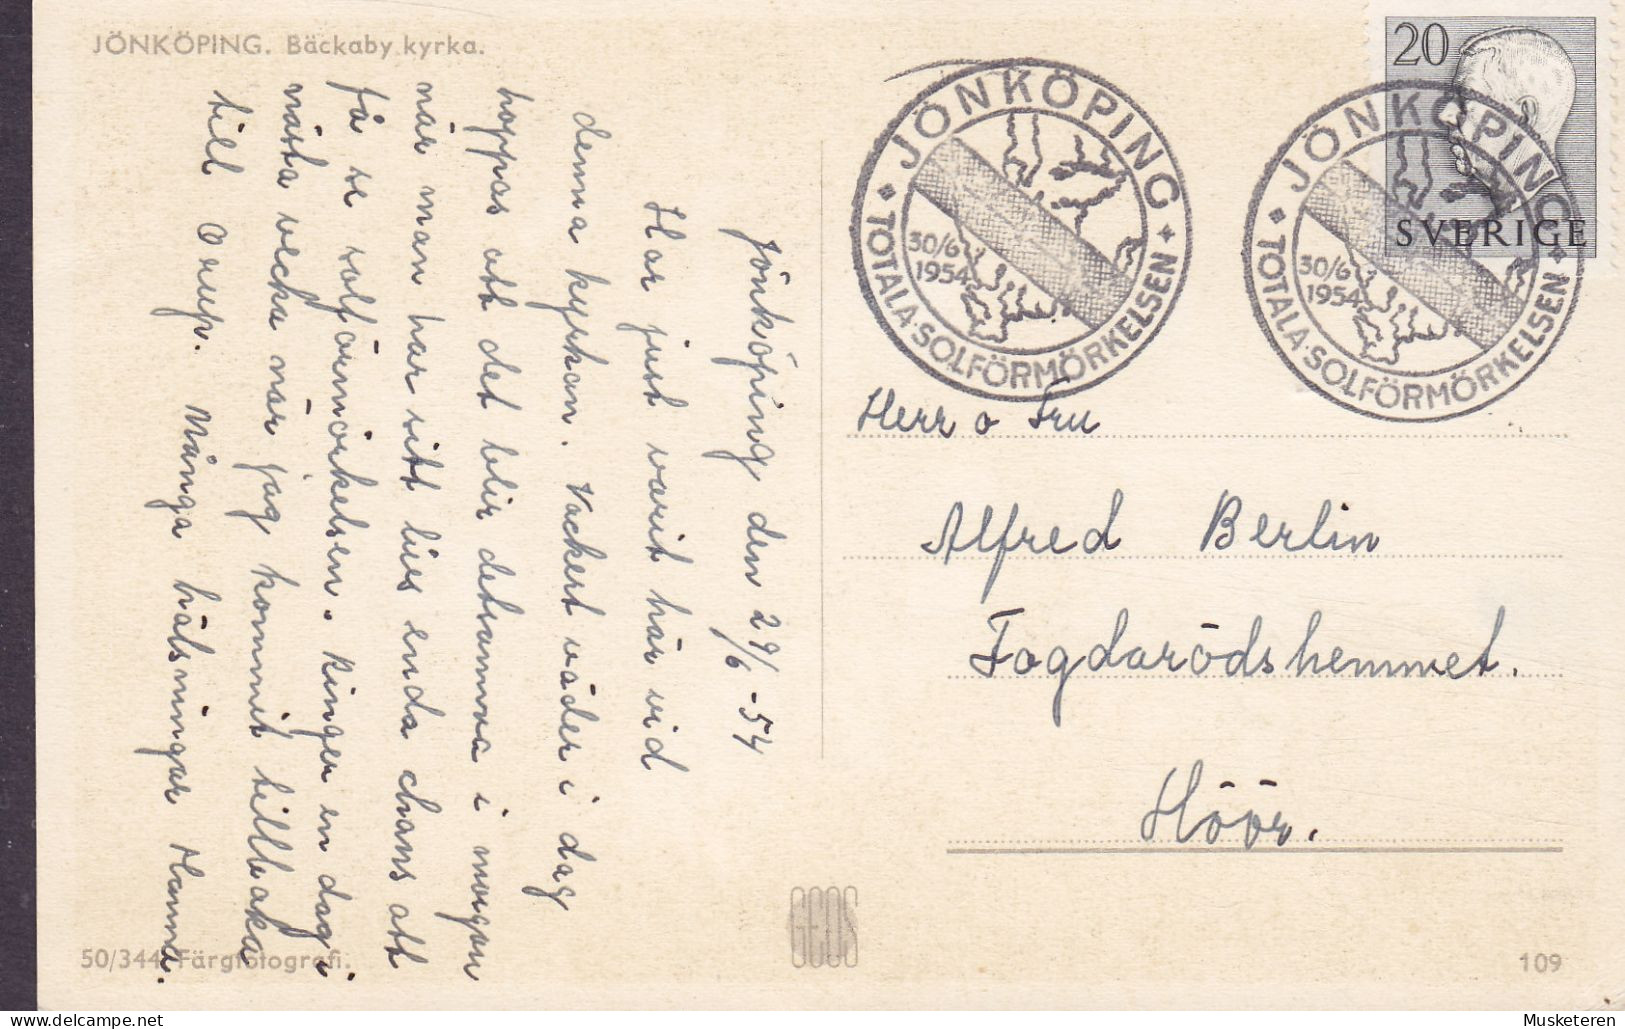 JÖNKÖPING. Bäckaby kyrka.
Jönköping den 29/6 -54
Har just varit här vid
denna kyrkan. Vackert väder i dag
hoppas att det blir detsamma i morgon
när man har sitt livs enda chans att
få se solförmörkelsen. Ringer en dag i
nästa vecka när jag kommit tillbaka
till Örup. Många hälsningar Hanna.
50/344 Färgfotografi.
GEOS
JÖNKÖPING
30/6
1954
TOTALA·SOLFÖRMÖRKELSEN
20
SVERIGE
JÖNKÖPING
30/6
1954
TOTALA·SOLFÖRMÖRKELSEN
Herr o Fru
Alfred Berlin
Fogdarödshemmet.
Höör.
109
the best of past on delcampe.net
Musketeren